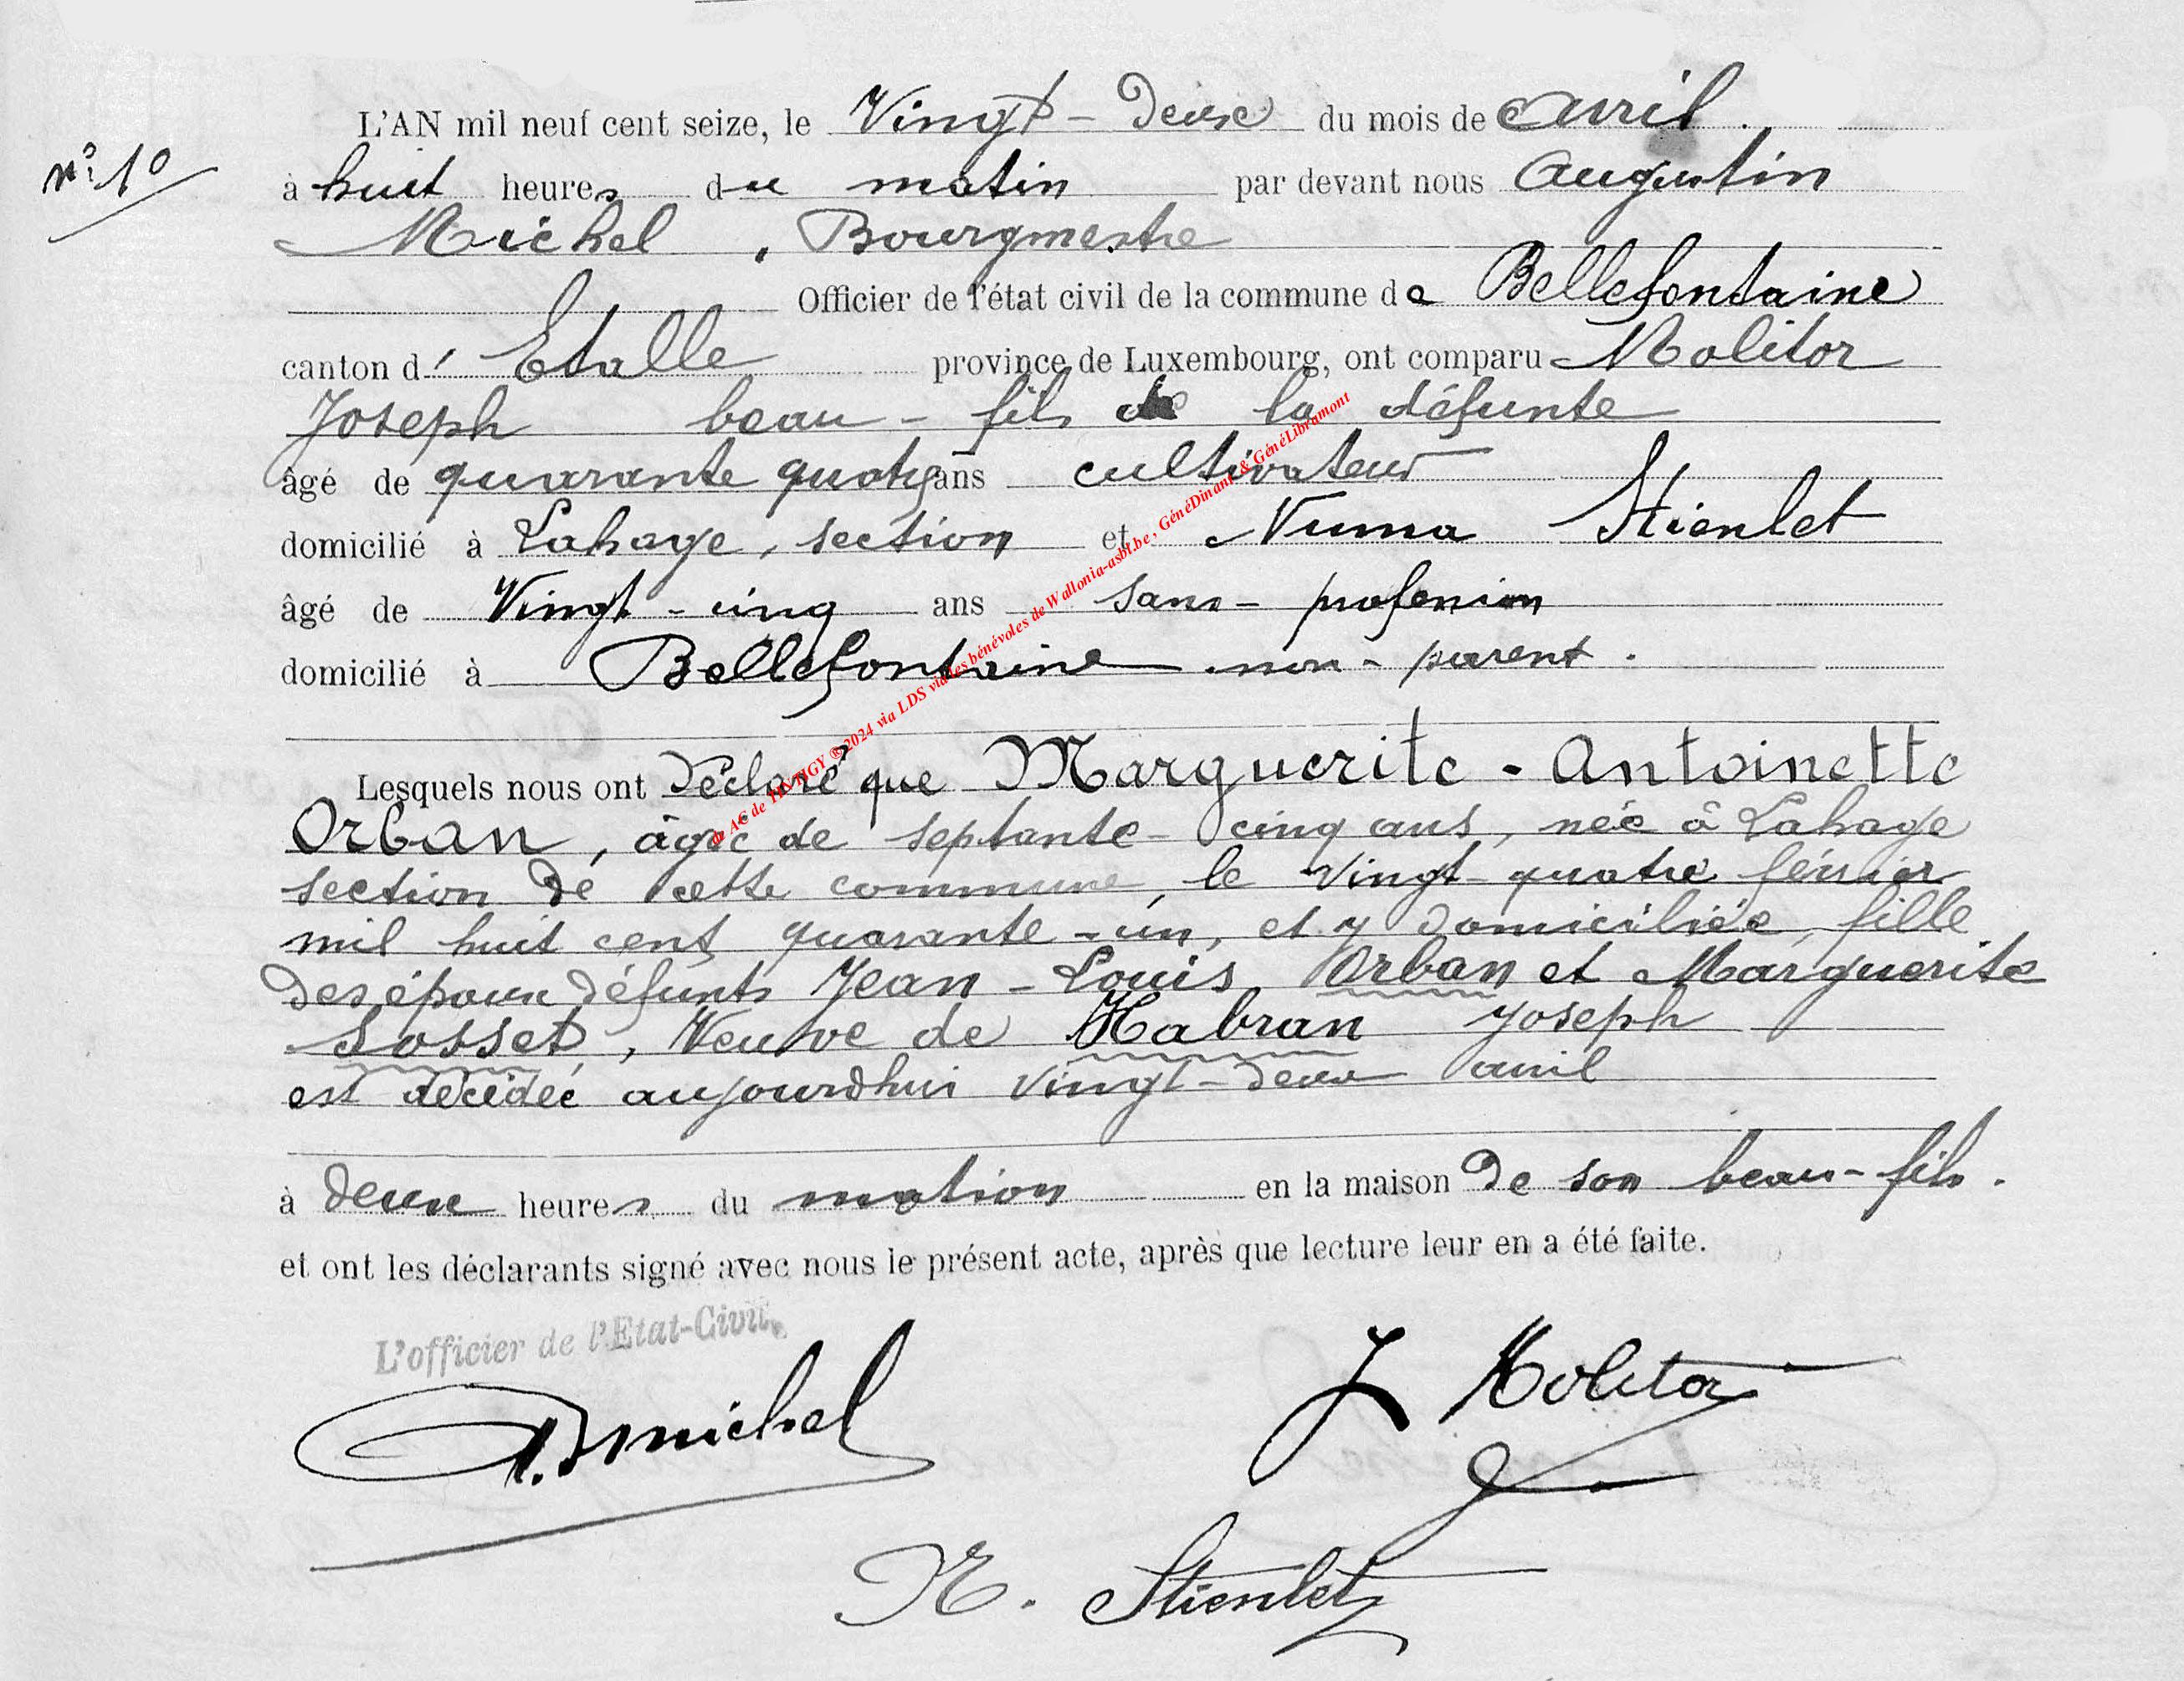 L'AN mil neuf cent seize, le Vingt-Deux du mois de Avril
n° 10
à huit heures du matin par devant nous Augustin
Michel, Bourgmestre
Officier de l'état civil de la commune de Bellefontaine
canton d' Etalle province de Luxembourg, ont comparu Molitor
Joseph beau-fils de la défunte
âgé de quarante quatre ans cultivateur
domicilié à Lahage, section et Numa Stienlet
âgé de Vingt-cinq ans sans-profession
domicilié à Bellefontaine non-parent.
Lesquels nous ont Déclaré que Marguerite-Antoinette
Orban, âgée de septante-cinq ans, née à Lahage
section de cette commune, le vingt-quatre février
mil huit cent quarante-un, et y domiciliée, fille
des époux défunts Jean-Louis Orban et Marguerite
Sosset, Veuve de Habran Joseph
est décédée aujourdhui vingt-deux avril
à deux heures du mation en la maison de son beau-fils.
et ont les déclarants signé avec nous le présent acte, après que lecture leur en a été faite.
L'officier de l'Etat-Civil,
A. Michel
J Molitor
N. Stienlet
de AC de TINTIGY ® 2024 via LDS via les bénévoles de Wallonia-asbl.be, GénéDinant & GénéLibramont